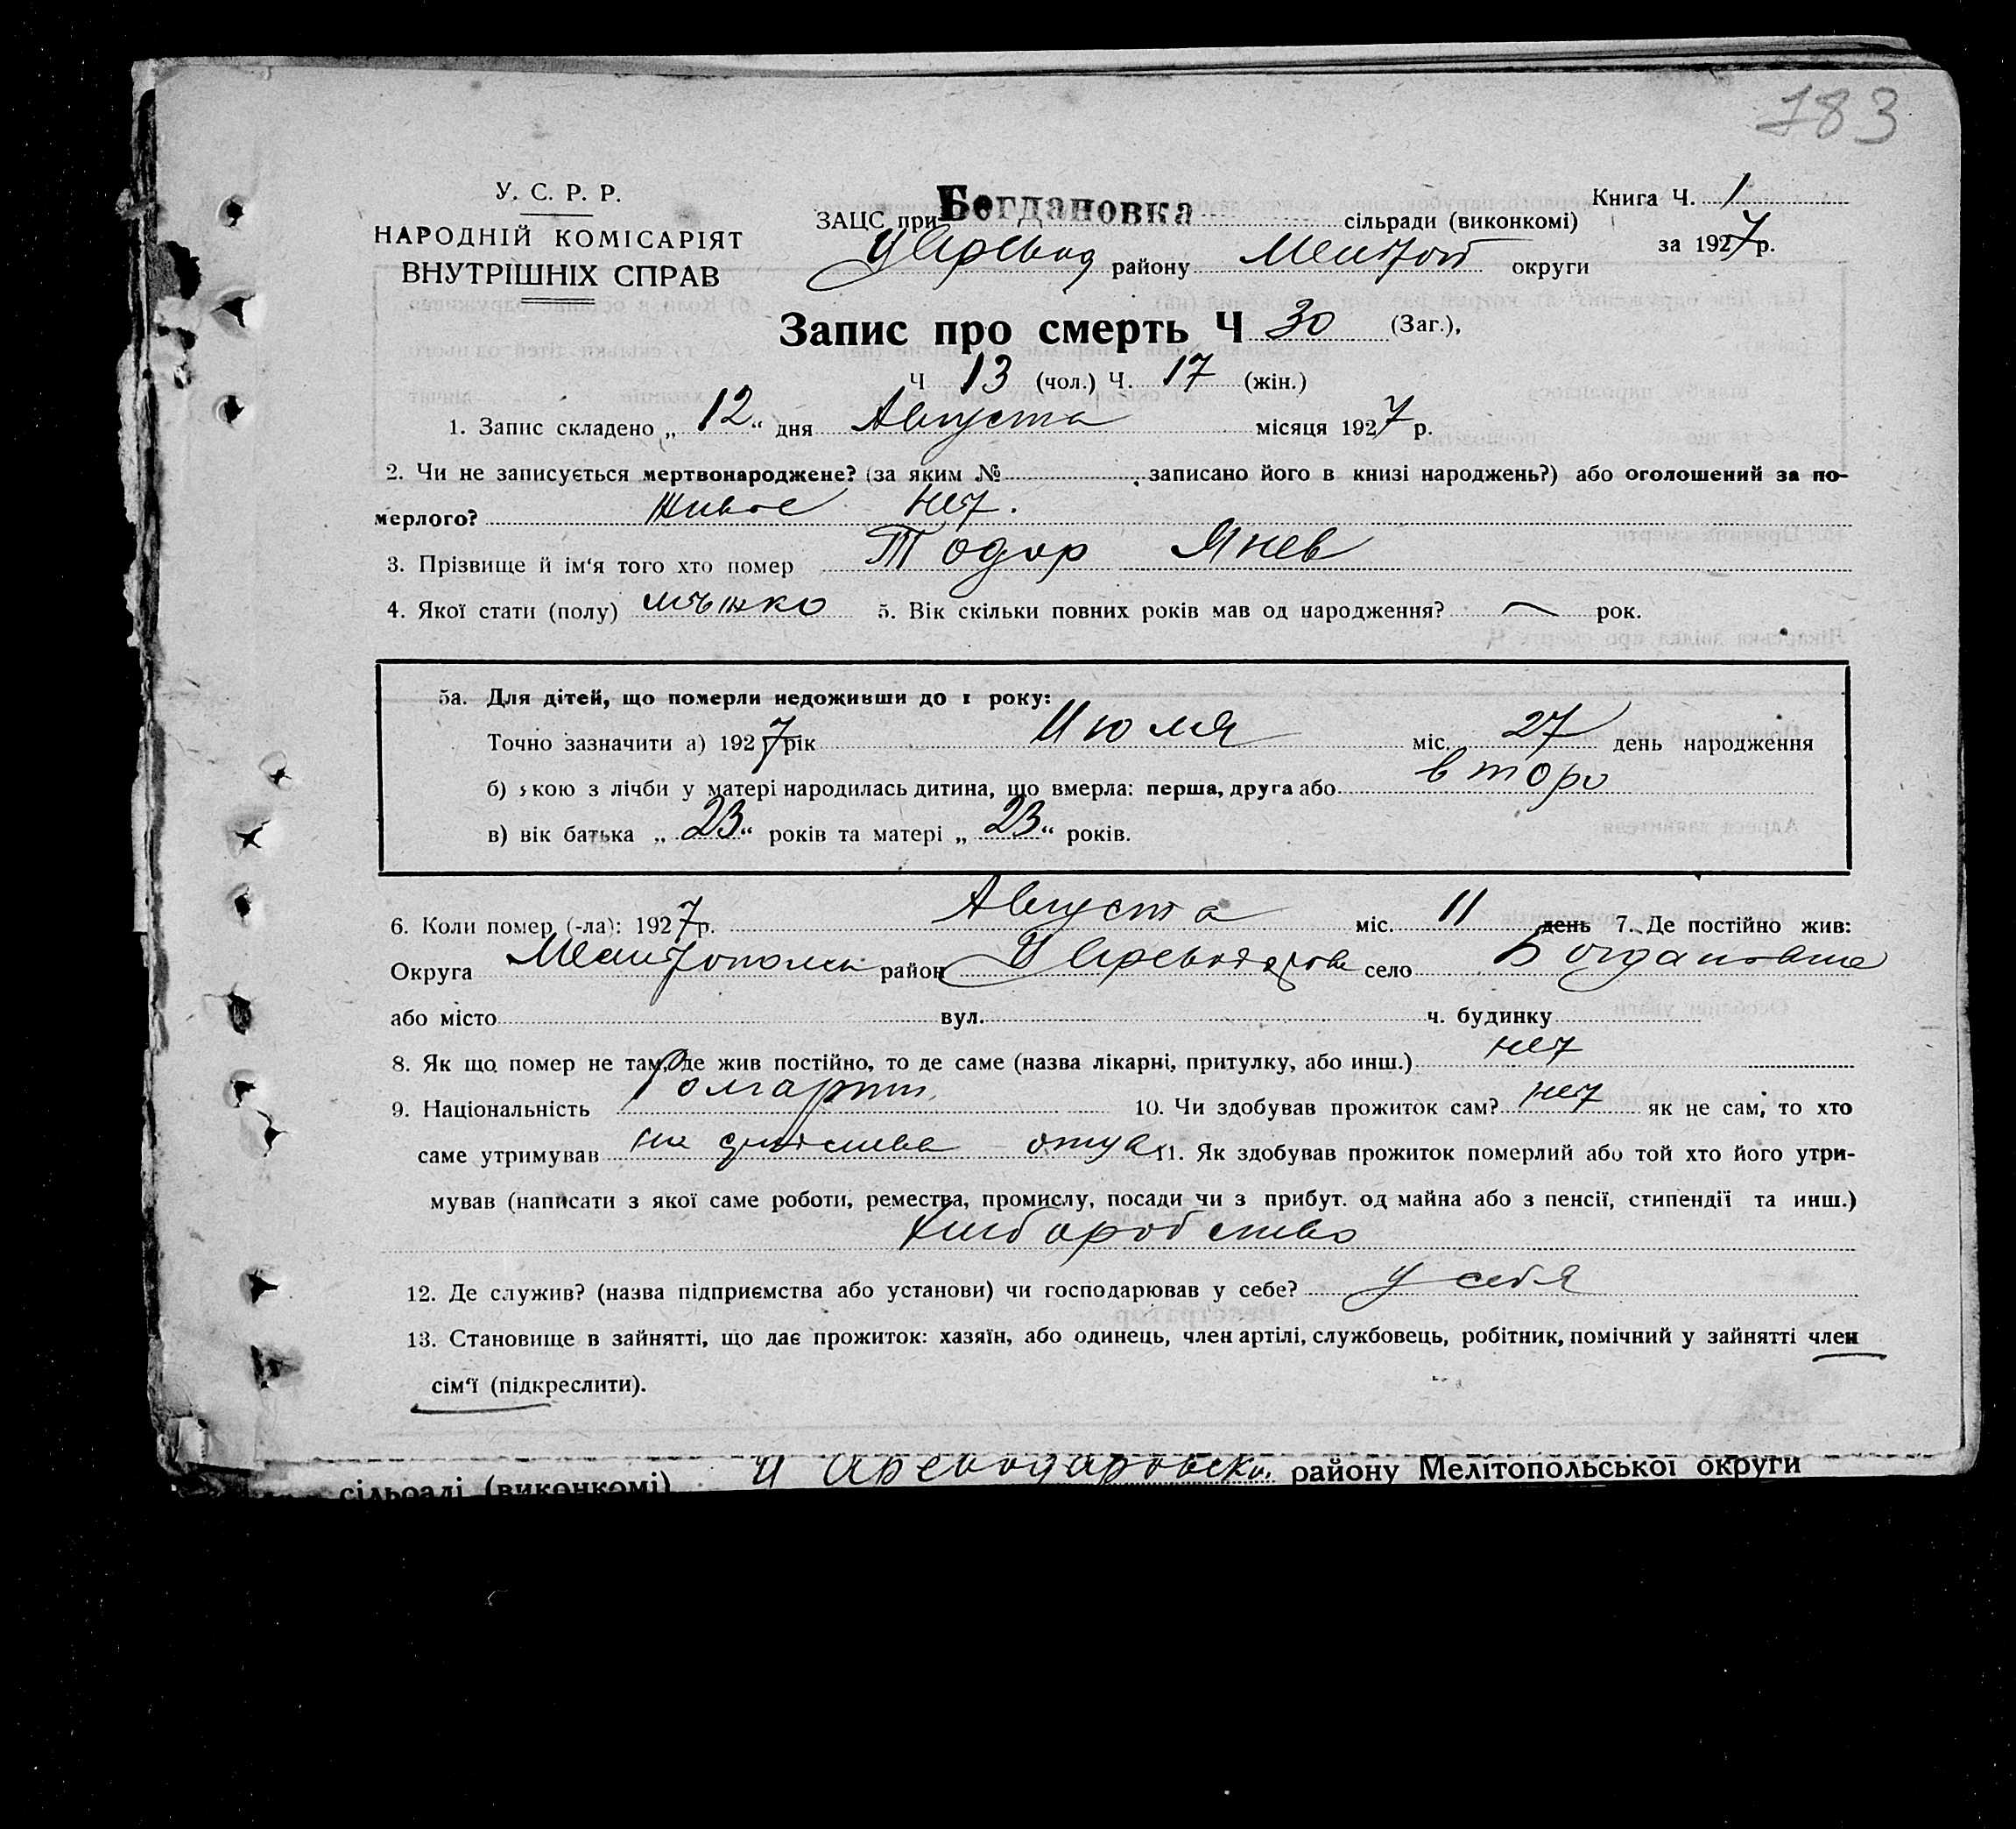 183
У. С. Р. Р.
НАРОДНІЙ КОМІСАРІЯТ
ВНУТРІШНІХ СПРАВ
ЗАЦС при Богдановка сільради (виконкомі)
Царевод району Мелитоп округи
Книга Ч. 1
за 1927 р.
Запис про смерть Ч 30 (Заг.),
Ч 13 (чол.) Ч. 17 (жін.)
1. Запис складено „ 12 “ дня Августа місяця 1927 р.
2. Чи не записується мертвонароджене? (за яким № записано його в книзі народжень?) або оголошений за по-
мерлого? живое нет.
3. Прізвище й ім‘я того хто помер Тодор Янев
4. Якої стати (полу) мъжко 5. Вік скільки повних років мав од народження? — рок.
5а. Для дітей, що померли недоживши до 1 року:
Точно зазначити а) 1927 рік Июля міс. 27 день народження
б) якою з лічби у матері народилась дитина, що вмерла: перша, друга або второ
в) вік батька „ 23 “ років та матері „ 23 “ років.
6. Коли помер (-ла): 1927 р. Августа міс. 11 день 7. Де постійно жив:
Округа Мелитополск район Цареводаров село Богдановка
або місто вул. ч. будинку
8. Як що помер не там, де жив постійно, то де саме (назва лікарні, притулку, або инш.) нет
9. Національність болгарин 10. Чи здобував прожиток сам? нет як не сам, то хто
саме утримував на средства отца 11. Як здобував прожиток померлий або той хто його утри-
мував (написати з якої саме роботи, ремества, промислу, посади чи з прибут. од майна або з пенсії, стипендії та инш.)
хлибаробство
12. Де служив? (назва підприємства або установи) чи господарював у себе? у себя
13. Становище в зайнятті, що дає прожиток: хазяїн, або одинець, член артілі, службовець, робітник, помічний у зайнятті член
сім‘ї (підкреслити).
сільраді (виконкомі) Цареводаровски району Мелітопольської округи